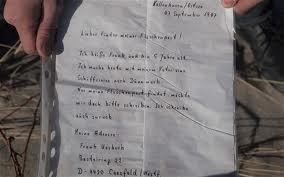 07 September 1987
Lieber Finder meiner Flaschenpost!
Ich heiße Frank und bin 5 Jahre alt.
Ich mache heute mit meinem Vater eine
Schiffsreise nach Dänemark.
Wer meine Flaschenpost findet, möchte
mir doch bitte schreiben. Ich schreibe
auch zurück.
Meine Adresse:
Frank
22
D-4420 Coesfeld/Westf